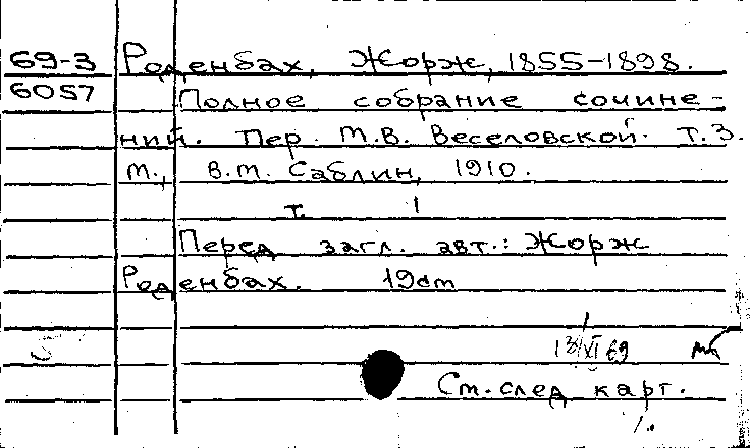 69-3 Роденбах, Жорж, 1855-1898.
6057 Полное собрание сочине-
ний. Пер. М.В. Веселовской. Т.3.
М., В.М. Саблин, 1910.
т. 1
Перед загл. авт.: Жорж
Роденбах. 19cm
13/VI 69
См. след карт.